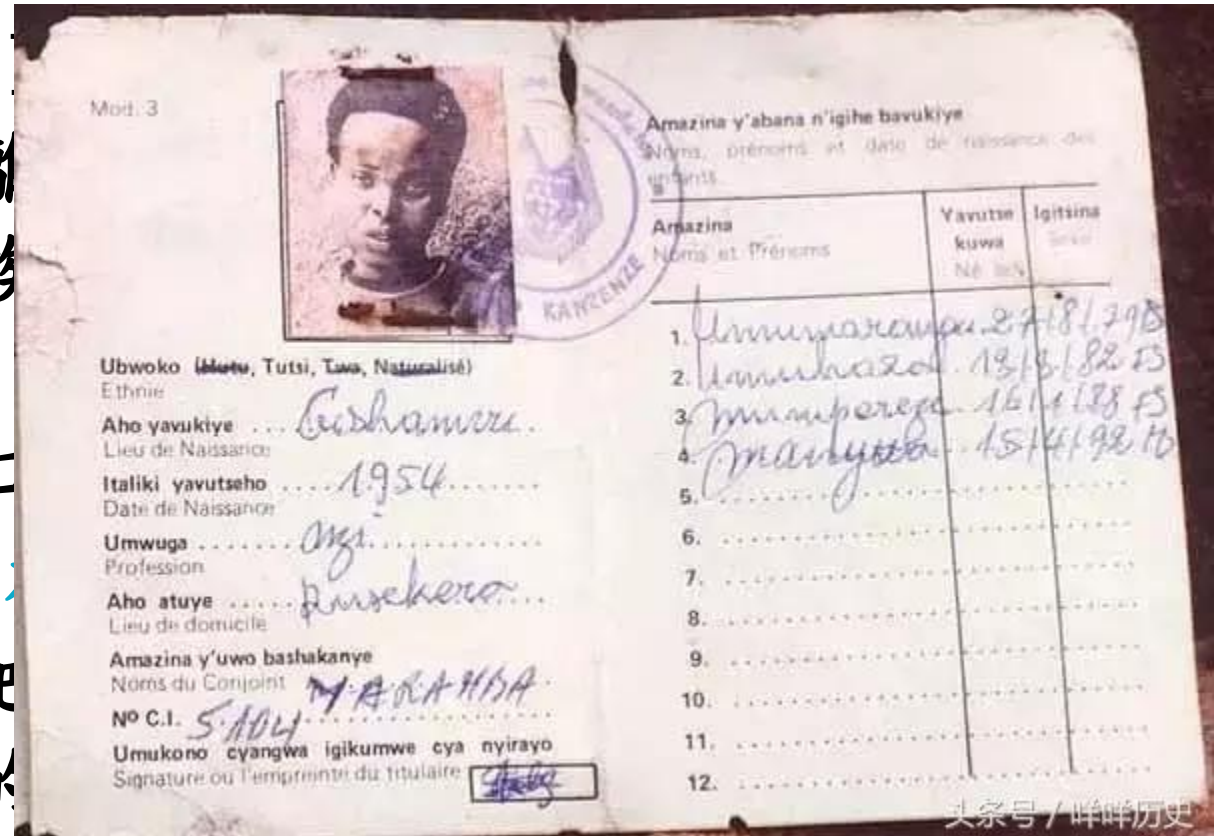 Mod. 3
KANZENZE
Ubwoko (Hutu, Tutsi, Twa, Naturalisé)
Ethnie
Aho yavukiye ... Gishamvu.
Lieu de Naissance
Italiki yavutseho .... 1954 .......
Date de Naissance
Umwuga .......
Profession
Aho atuye ..... Rusekera
Lieu de domicile
Amazina y'uwo bashakanye
Noms du Conjoint MARAHBA.
Nº C.I. 5.104
Umukono cyangwa igikumwe cya nyirayo
Signature ou l'empreinte du titulaire
Amazina y'abana n'igihe bavukiye
Noms, prénoms et date de naissance des
enfants
Amazina Yavutse Igitsina
Noms et Prénoms kuwa
Né le
1. 27/8/79
2. 82
3. 16/1/88
4. 15/4/92
5.
6.
7.
8.
9.
10.
11.
12.
头条号 / 咩咩历史